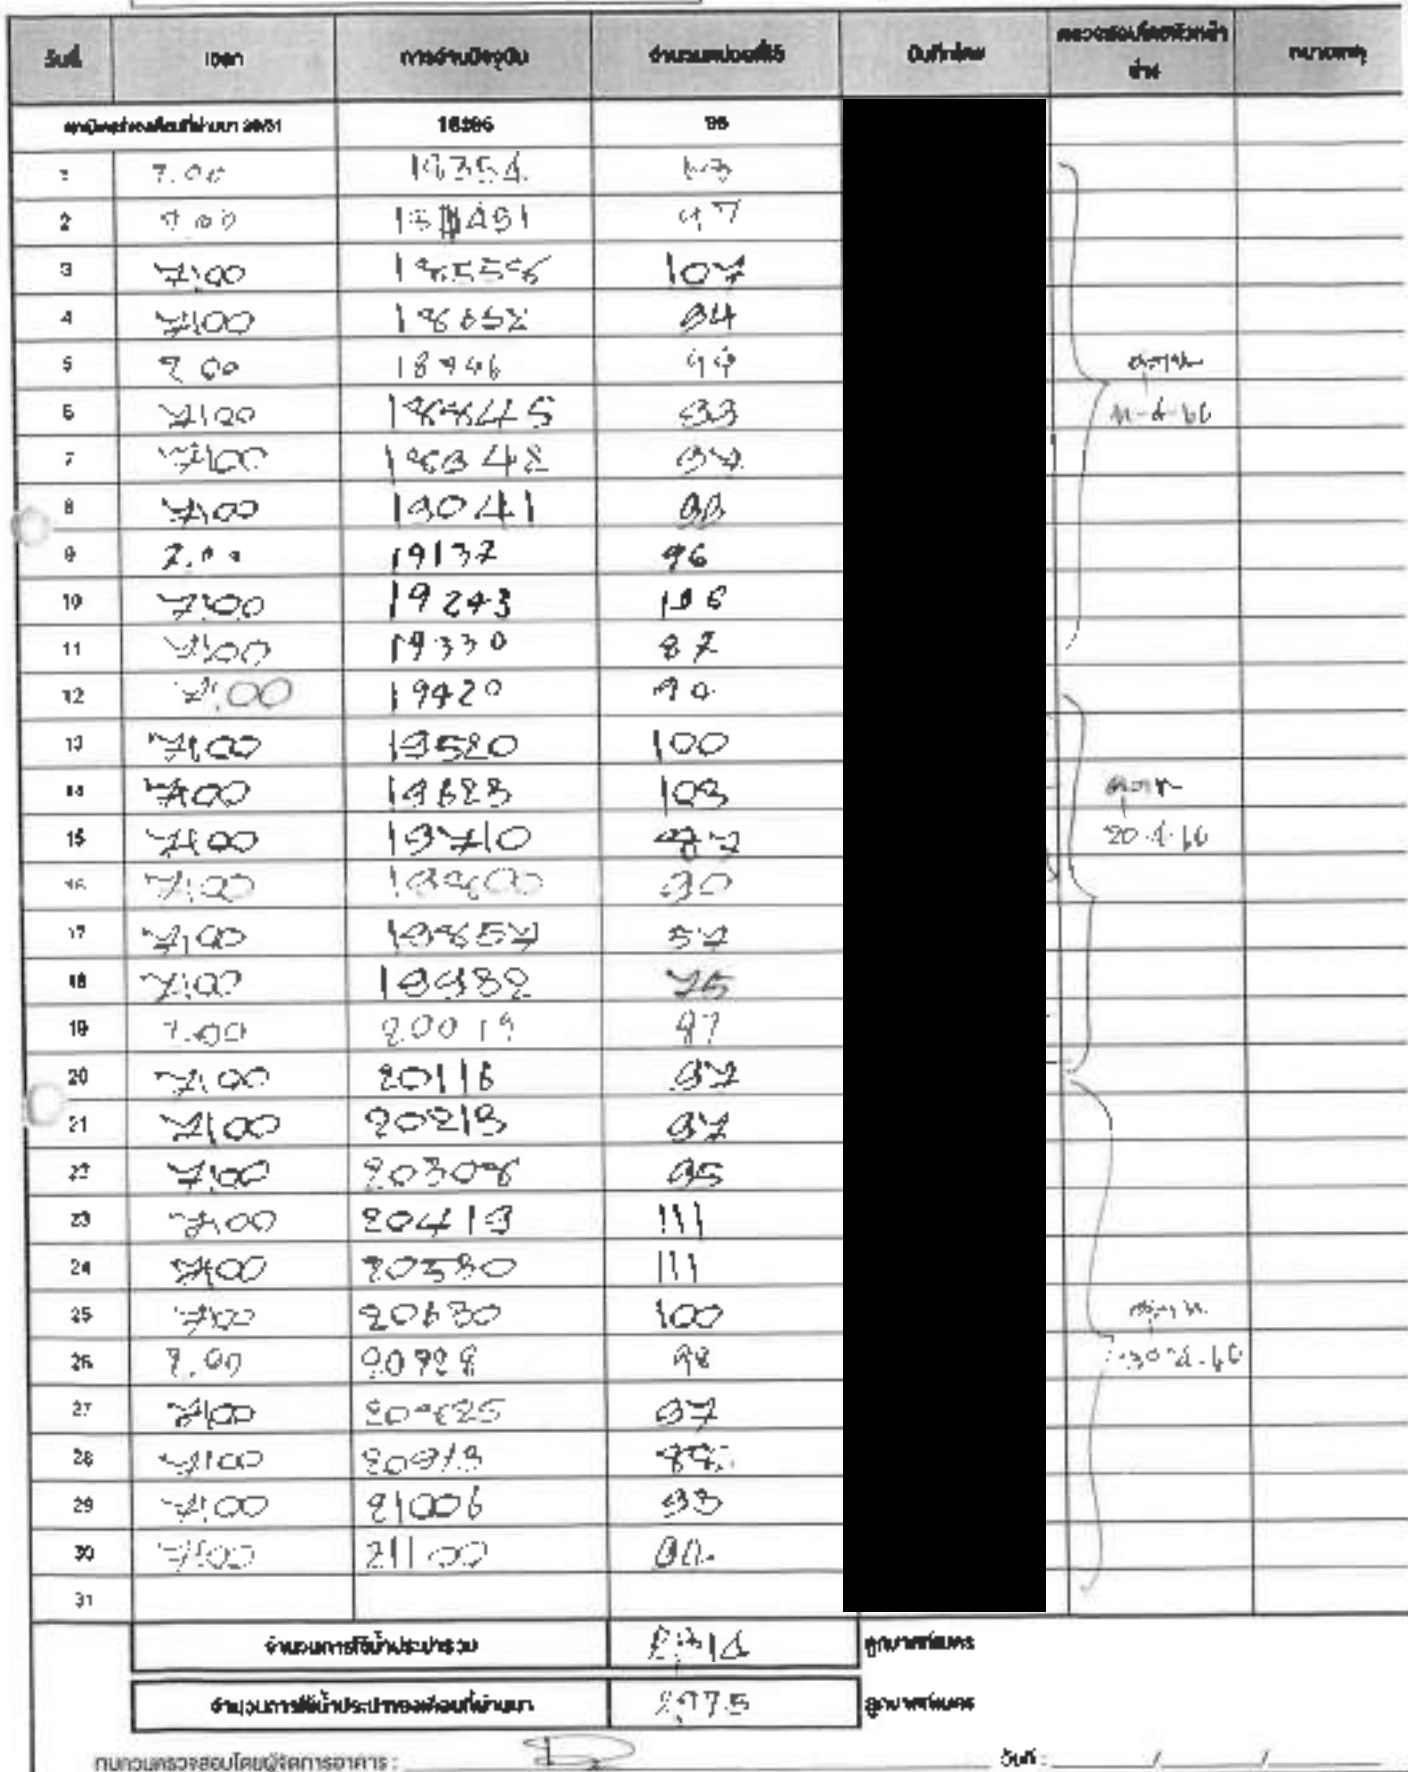 วันที่ เวลา การอ่านปัจจุบัน จำนวนหน่วยที่ใช้ บันทึกโดย ตรวจสอบโดยหัวหน้าช่าง หมายเหตุ
18286 98
1 7.00 18354
2 7.00 97
3 7:00 18558 107
4 7:00 18652 94
5 7.00 18746 94
6 7:00 18845 99
7 7:00 18942 97
8 7:00 19041 99
9 7.00 19137 96
10 7:00 19243 106
11 7:00 19330 87
12 7:00 19420 90
13 7:00 19520 100
14 7:00 19623 103
15 7:00 19710 87
16 7:00 19800 90
17 7:00 19857 57
18 7:00 19932 75
19 7.00 20019 87
20 7:00 20116 97
21 7:00 20213 97
22 7:00 20308 95
23 7:00 20419 111
24 7:00 20530 111
25 7:00 20630 100
26 7.00 20728 98
27 7:00 20825 97
28 7:00 20913 88
29 7:00 21006 93
30 7:00 21100
31
จำนวนการใช้น้ำประปารวม ลูกบาศก์เมตร
จำนวนการใช้น้ำประปาของเดือนที่ผ่านมา 2,975 ลูกบาศก์เมตร
ทบทวนตรวจสอบโดยผู้จัดการอาคาร : วันที่ : / /